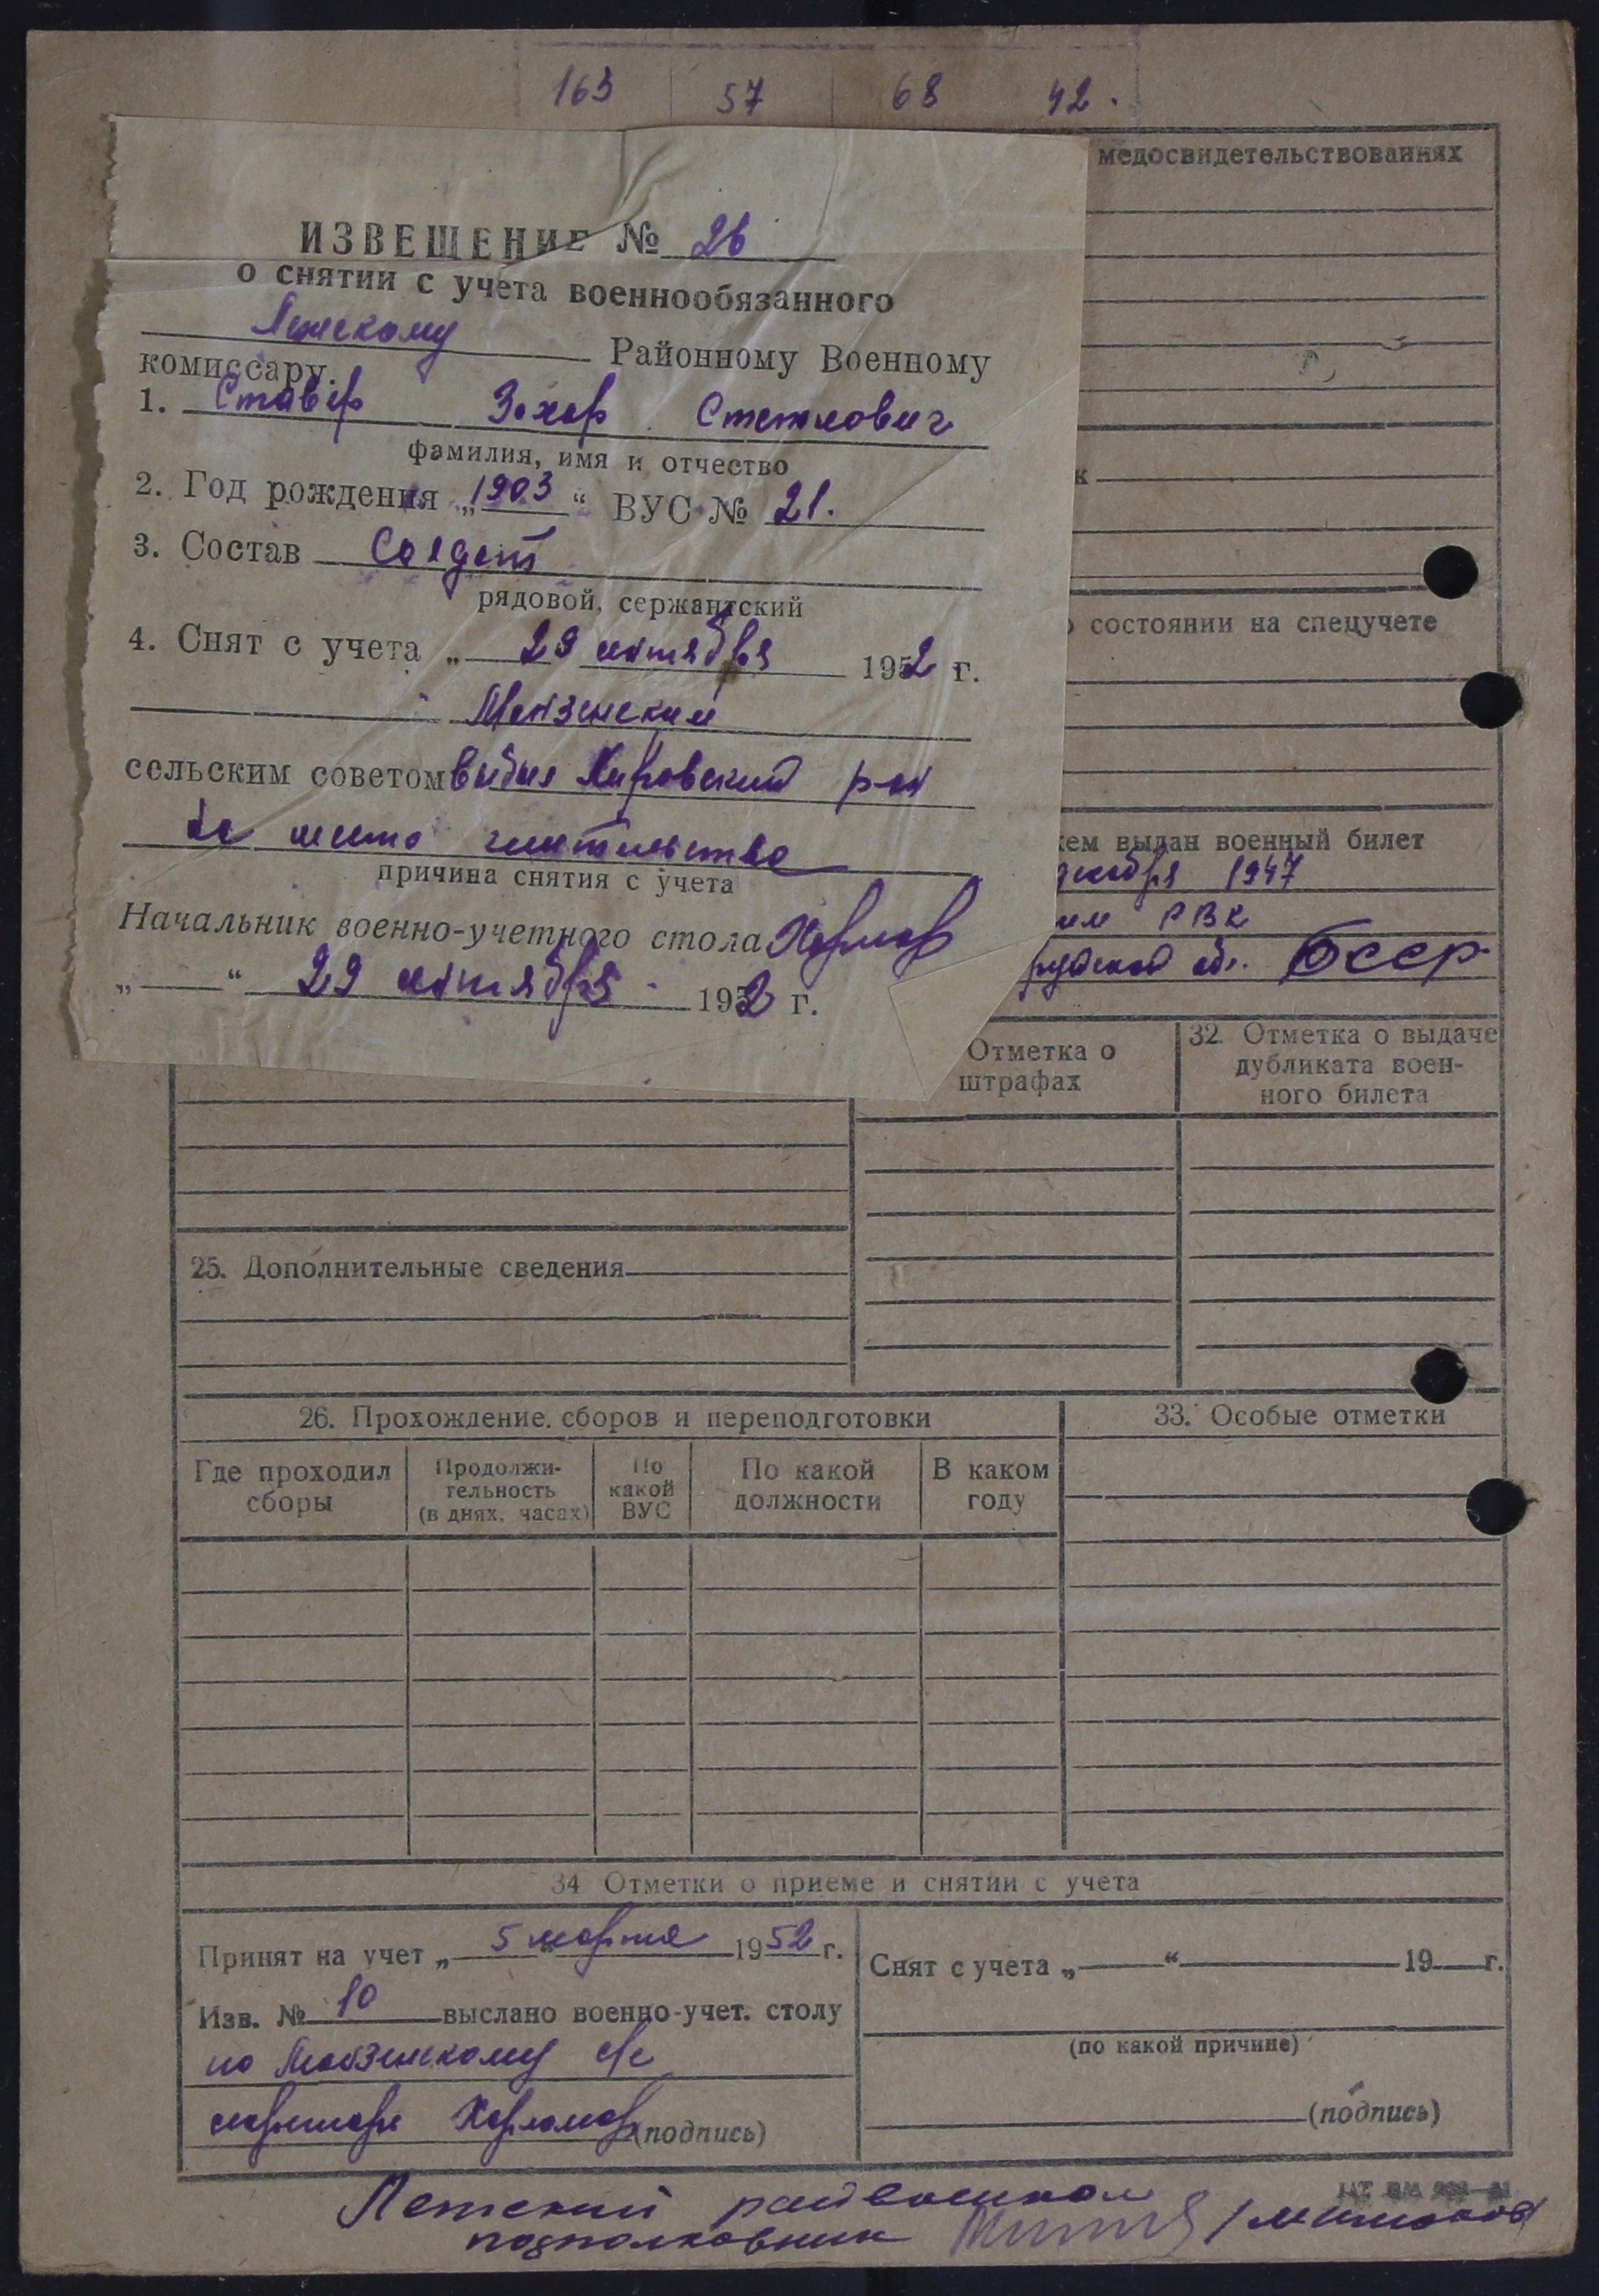 163 57 68 42.
медосвидетельствованиях
ИЗВЕЩЕНИЕ № 26
о снятии с учета военнообязанного
Районному Военному
комиссару.
1. Ставер Захар Степанович
фамилия, имя и отчество
2. Год рождения „1903“ ВУС № 21.
3. Состав Солдат
рядовой, сержантский
4. Снят с учета „ 29 октября 1952 г.
сельским советом выбыл Кировский р-он
на место жительства
причина снятия с учета
Начальник военно-учетного стола
„ “ 29 октября 1952 г.
к
о состоянии на спецучете
кем выдан военный билет
декабря 1947
РВК
обл. БССР
Отметка о
штрафах
32. Отметка о выдаче
дубликата воен-
ного билета
25. Дополнительные сведения
26. Прохождение сборов и переподготовки
33. Особые отметки
Где проходил
сборы
Продолжи-
тельность
(в днях, часах)
По
какой
ВУС
По какой
должности
В каком
году
34 Отметки о приеме и снятии с учета
Принят на учет „ 5 “ марта 1952 г.
Изв. № 10 выслано военно-учет. столу
по с/с
(подпись)
Снят с учета „ “ 19 г.
(по какой причине)
(подпись)
Летский райвоенком
подполковник